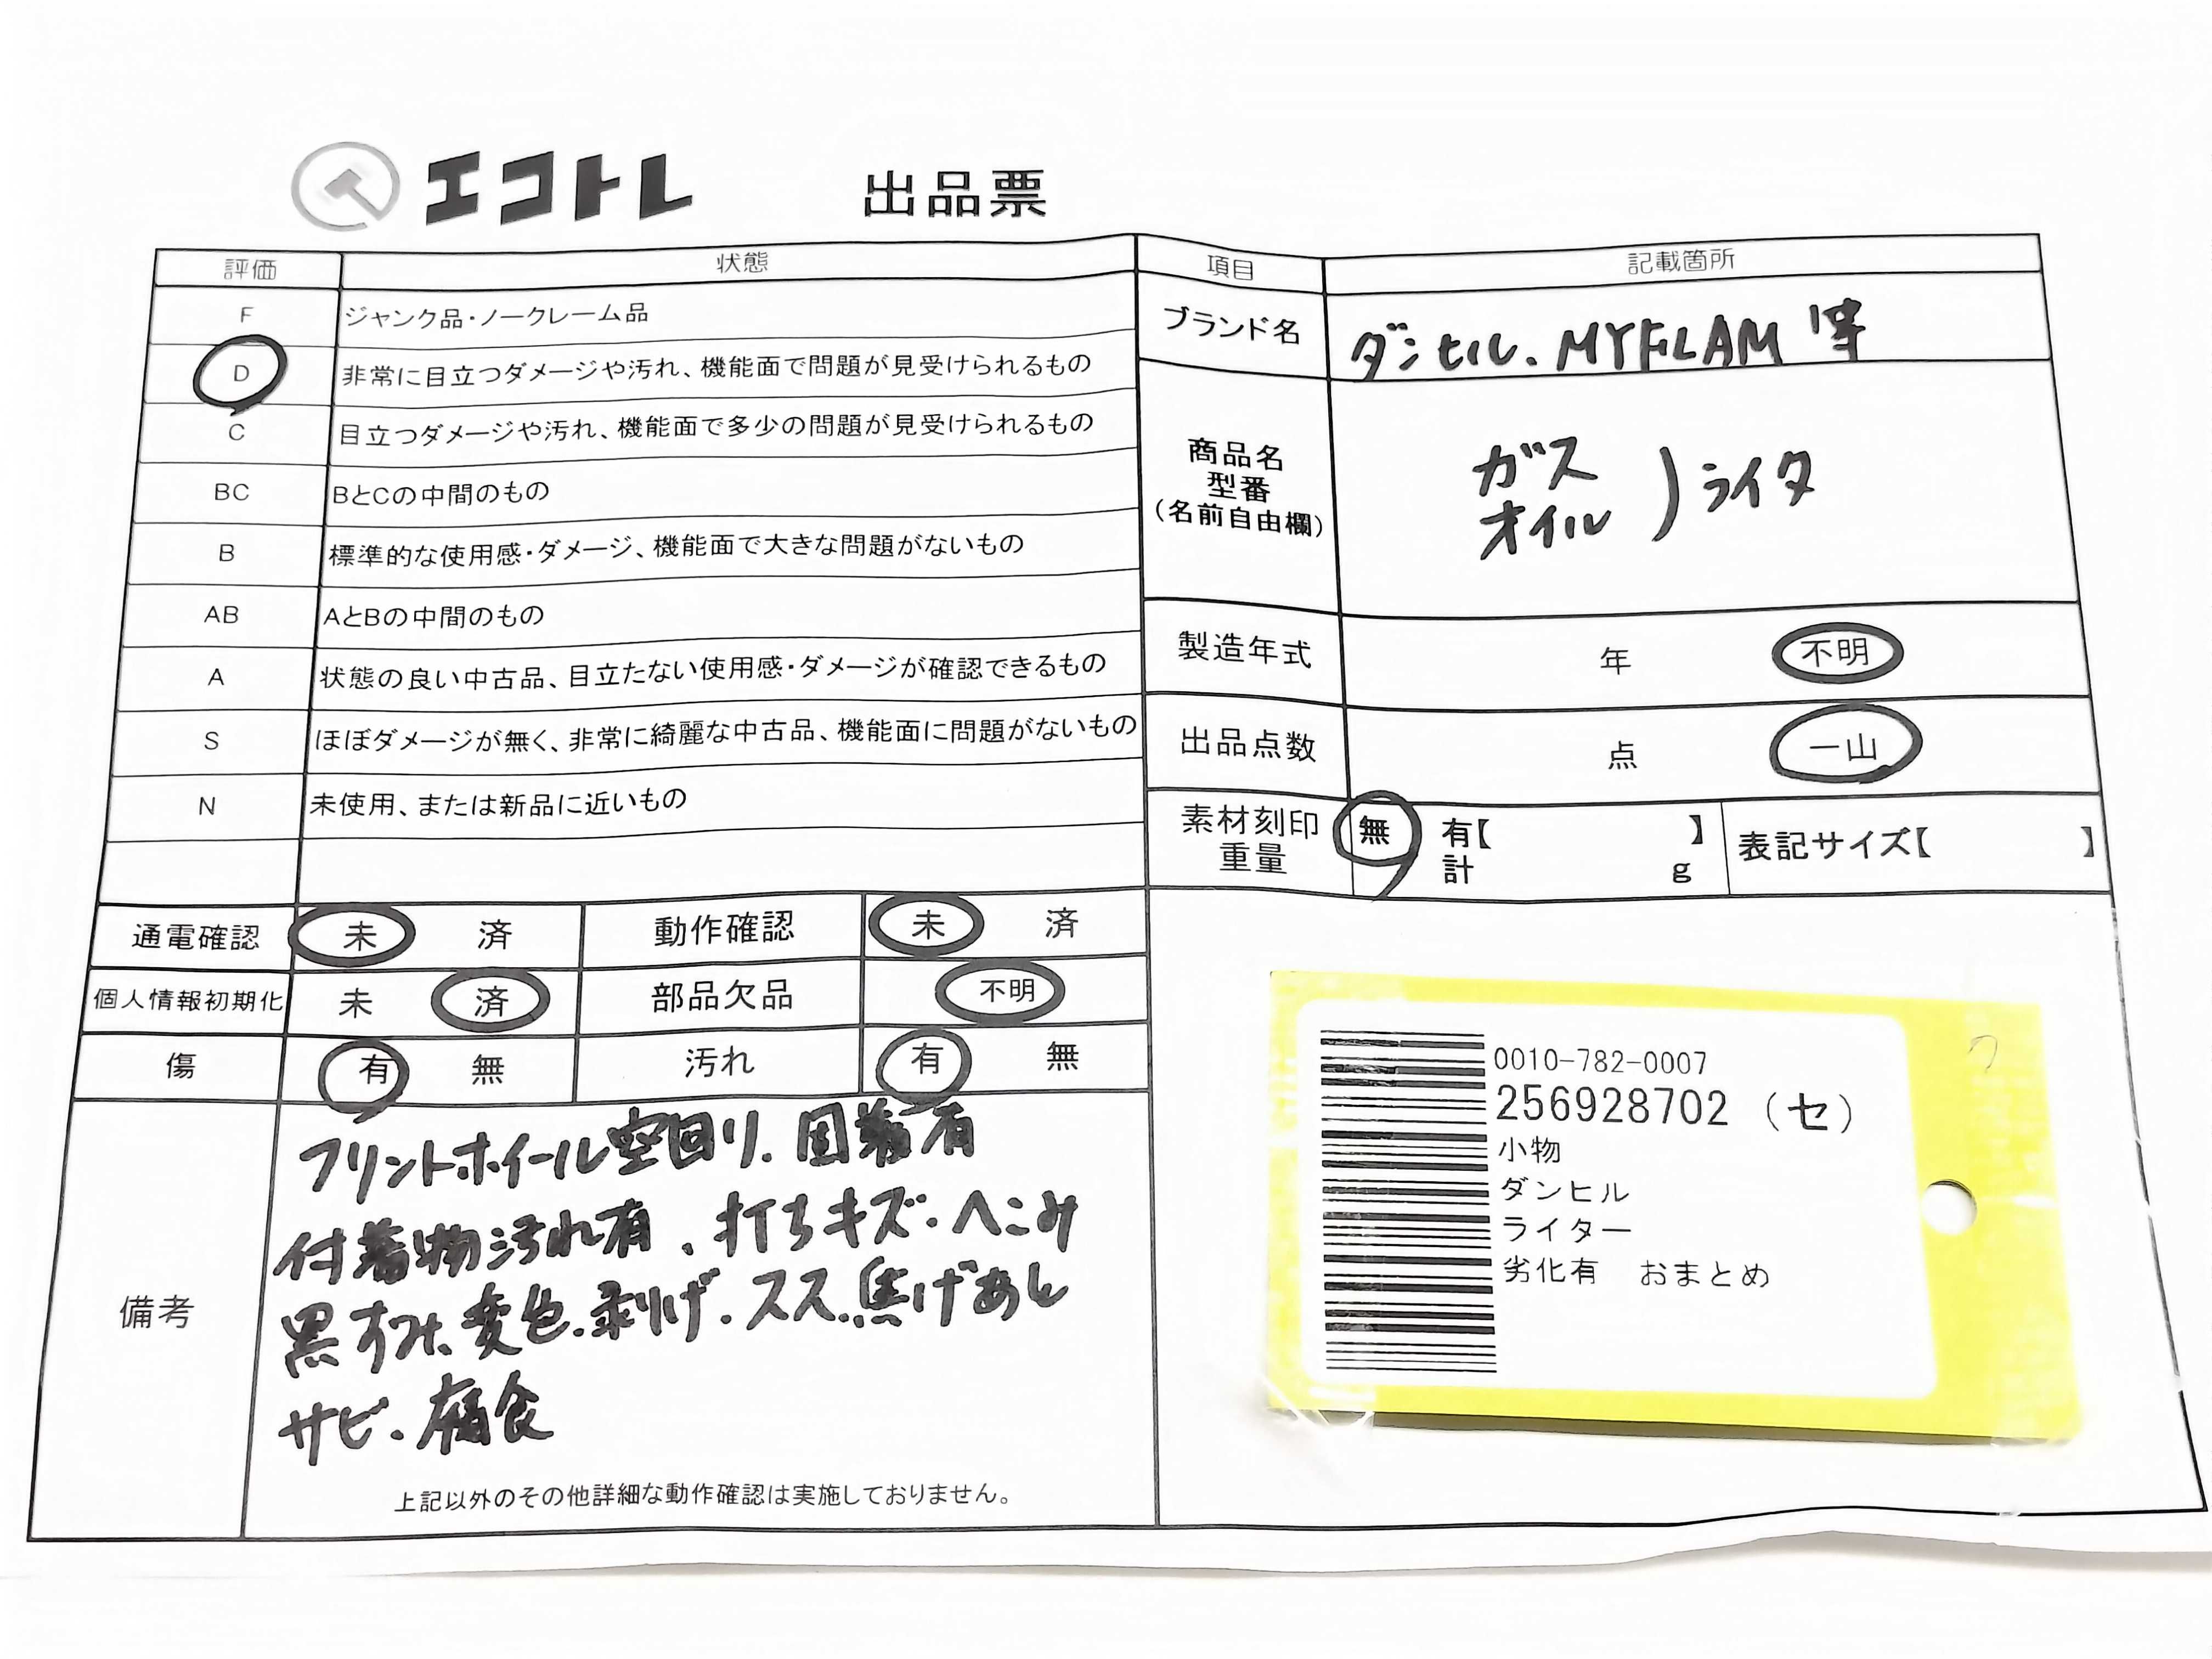 エコトレ 出品票
評価 状態
F ジャンク品・ノークレーム品
D 非常に目立つダメージや汚れ、機能面で問題が見受けられるもの
C 目立つダメージや汚れ、機能面で多少の問題が見受けられるもの
BC BとCの中間のもの
B 標準的な使用感・ダメージ、機能面で大きな問題がないもの
AB AとBの中間のもの
A 状態の良い中古品、目立たない使用感・ダメージが確認できるもの
S ほぼダメージが無く、非常に綺麗な中古品、機能面に問題がないもの
N 未使用、または新品に近いもの
通電確認 未 済 動作確認 未 済
個人情報初期化 未 済 部品欠品 不明
傷 有 無 汚れ 有 無
備考
フリントホイール空回り、固着有
付着物汚れ有、打ちキズ・へこみ
黒ずみ、変色、剥げ、スス、焦げあり
サビ、腐食
上記以外のその他詳細な動作確認は実施しておりません。
項目 記載箇所
ブランド名 ダンヒル、MYFLAM 等
商品名
型番
(名前自由欄)
ガス
オイル ) ライタ
製造年式 年 不明
出品点数 点 一山
素材刻印 無 有【 】 表記サイズ【 】
重量 計 g
0010-782-0007
256928702 (セ)
小物
ダンヒル
ライター
劣化有 おまとめ